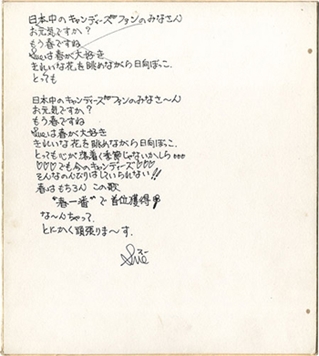 日本中のキャンディーズファンのみなさん
お元気ですか?
もう春ですね
Sueは春が大好き
きれいな花を眺めながら日向ぼっこ.
とっても
日本中のキャンディーズファンのみなさ〜ん
お元気ですか?
もう春ですね
Sueは春が大好き
きれいな花を眺めながら日向ぼっこ.
とっても心が落着く季節じゃないかしら...
♡♡♡でも今のキャンディーズ♡♡♡
そんなのんびりはしていられない!!
春はもちろん この歌
"春一番"で首位獲得!!
な〜んちゃって.
とにかく頑張りま〜す.
Sue